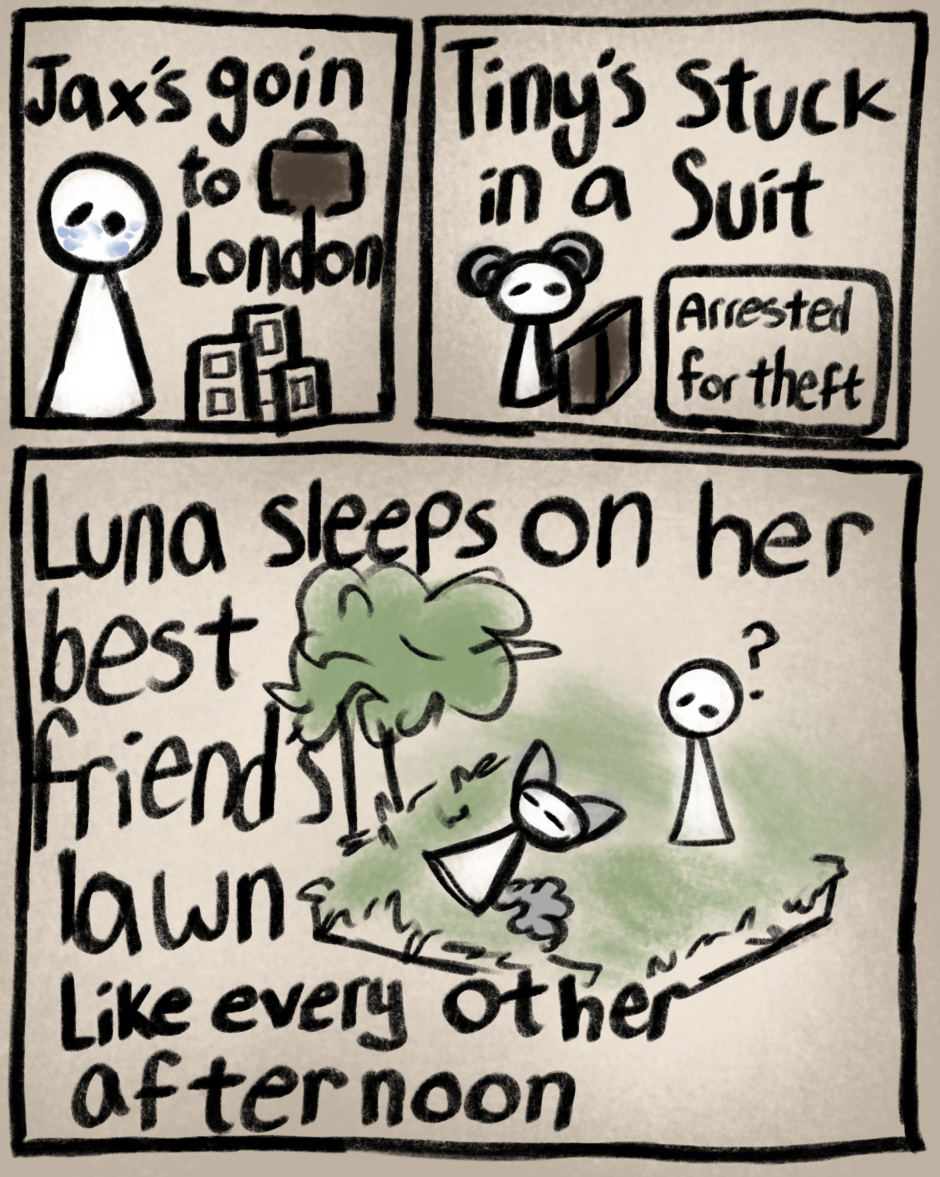 Jax's goin
to
London
Tiny's Stuck
in a Suit
Arrested
for theft
Luna sleeps on her
best
friend's
lawn
?
Like every other
afternoon